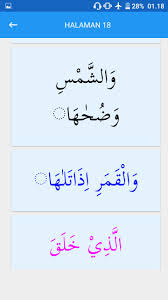 28% 01.18
HALAMAN 18
وَالشَّمْسِ
وَضُحٰهَاۙ
وَالْقَمَرِ اِذَاتَلٰهَاۙ
الَّذِيْ خَلَقَ